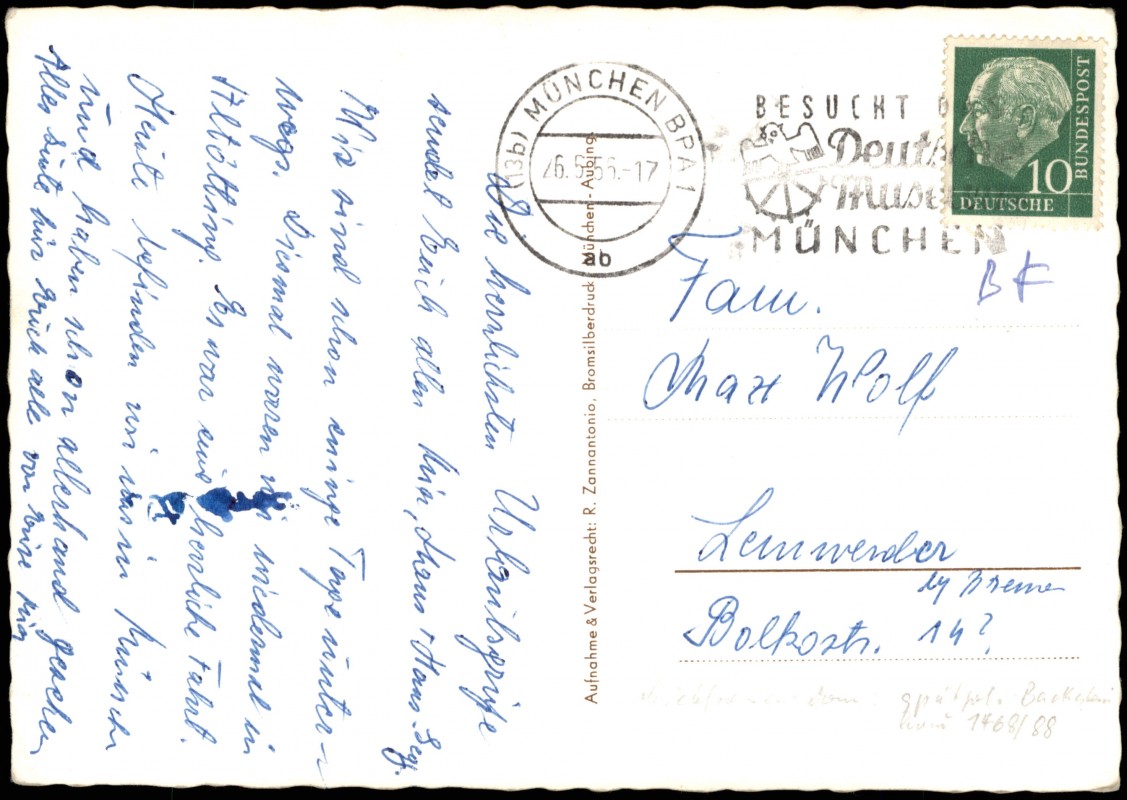 Die herzlichsten Urlaubsgrüße
sendet Euch allen Mia, Hans + Hans-Seg.
Wir sind schon einige Tage unter-
wegs. Diesmal waren wir wiedermal in
Altötting. Es war eine herrliche Fahrt.
Heute befinden wir uns in München
und haben schon allerhand gesehen
Alles Gute für Euch alle von Eure Mia
Aufnahme & Verlagsrecht: R. Zannantonio, Bromsilberdruck München-Aubing
(13b) MÜNCHEN BPA 1
26.6.56.-17
ab
BESUCHT D
Deutsch
Museum
MÜNCHEN
10
DEUTSCHE
BUNDESPOST
BK
Fam.
Max Wolf
Lemwerder
by Bremen
Bolkostr. 14?
spätgot. Backstein
1468/88